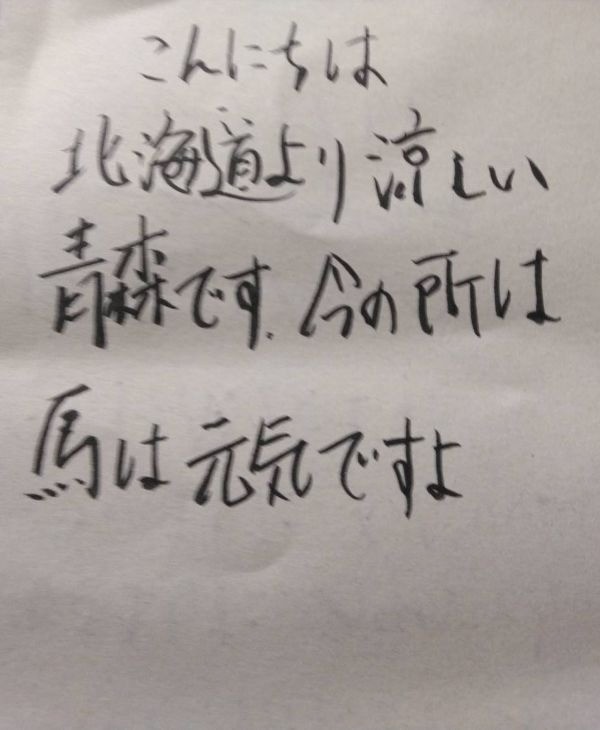 こんにちは
北海道より涼しい
青森です.今の所は
馬は元気ですよ